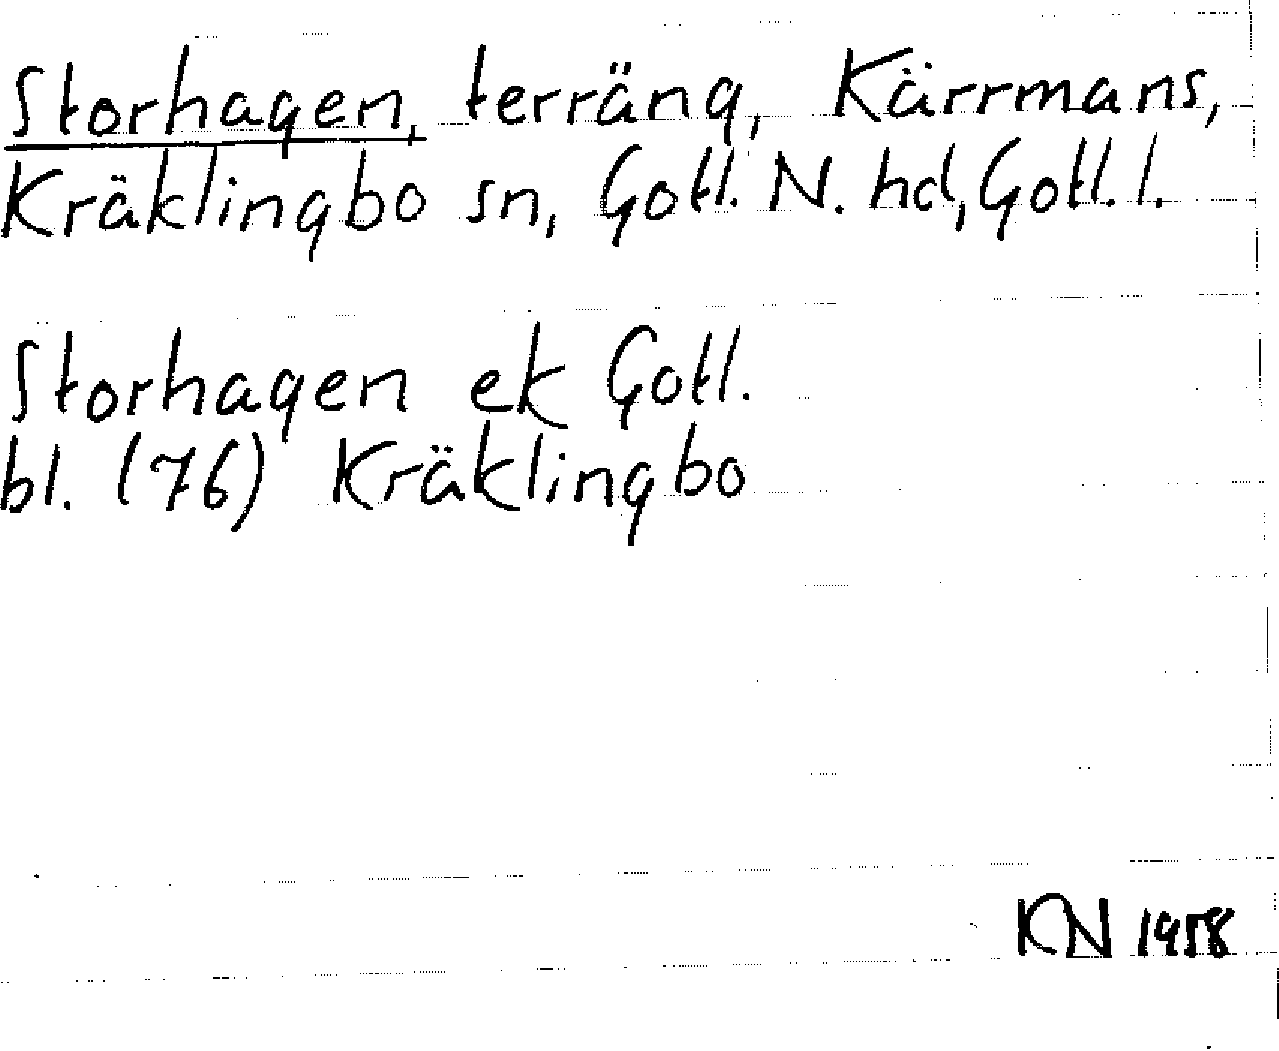 Storhagen, terräng, Kärrmans,
Kräklingbo sn, Gotl. N. hd, Gotl. l.
Storhagen ek Gotl.
bl. (76) Kräklingbo
KN 1958